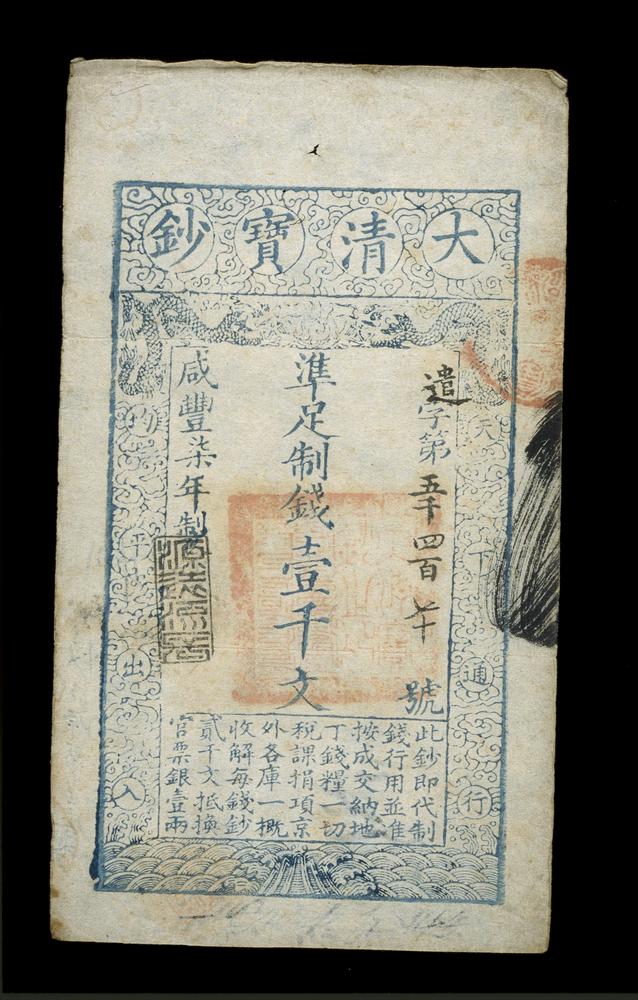 大清寶鈔
天下通行
均平出入
遣字第五千四百七十號
準足制錢壹千文
咸豐柒年製
源遠流長
此鈔即代制
錢行用並准
按成交納地
丁錢糧一切
稅課捐項京
外各庫一概
收解每錢鈔
貳千文抵換
官票銀壹兩